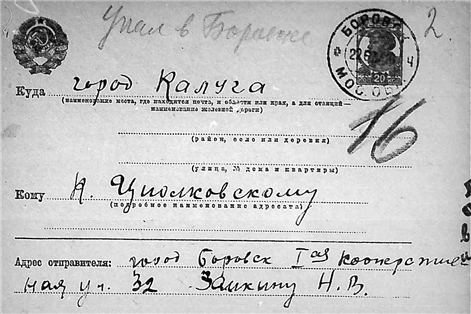 Упал в Боровске
2.
БОРОВСК
МОС. ОБЛ.
20
город Калуга
Куда
(наименование места, где находится почта, и области или края, а для станций—
наименование железной дороги)
16
(район, село или деревня)
(улица, № дома и квартиры)
Кому К. Циолковскому
(подробное наименование адресата)
Адрес отправителя: город Боровск Iая Кооператив
ная ул. 32 Заикину Н. В.